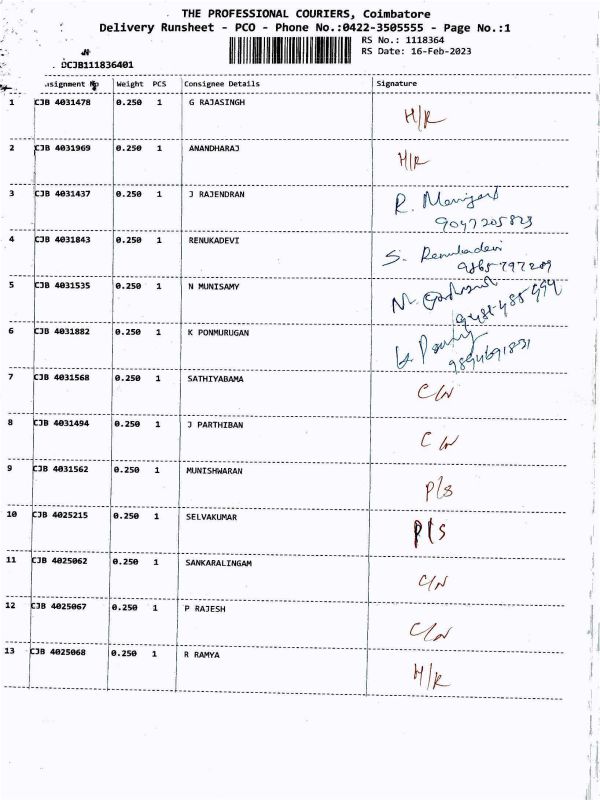 THE PROFESSIONAL COURIERS, Coimbatore
Delivery Runsheet - PCO - Phone No.:0422-3505555 - Page No.:1
RS No.: 1118364
RS Date: 16-Feb-2023
DCJB111836401
signment No Weight PCS Consignee Details Signature
1 CJB 4031478 0.250 1 G RAJASINGH H/R
2 CJB 4031969 0.250 1 ANANDHARAJ H/R
3 CJB 4031437 0.250 1 J RAJENDRAN R.
9047205823
4 CJB 4031843 0.250 1 RENUKADEVI S. Renukadevi
9865797289
5 CJB 4031535 0.250 1 N MUNISAMY
6 CJB 4031882 0.250 1 K PONMURUGAN
9894691831
7 CJB 4031568 0.250 1 SATHIYABAMA C/N
8 CJB 4031494 0.250 1 J PARTHIBAN C/N
9 CJB 4031562 0.250 1 MUNISHWARAN P/S
10 CJB 4025215 0.250 1 SELVAKUMAR P/S
11 CJB 4025062 0.250 1 SANKARALINGAM C/N
12 CJB 4025067 0.250 1 P RAJESH C/N
13 CJB 4025068 0.250 1 R RAMYA H/R